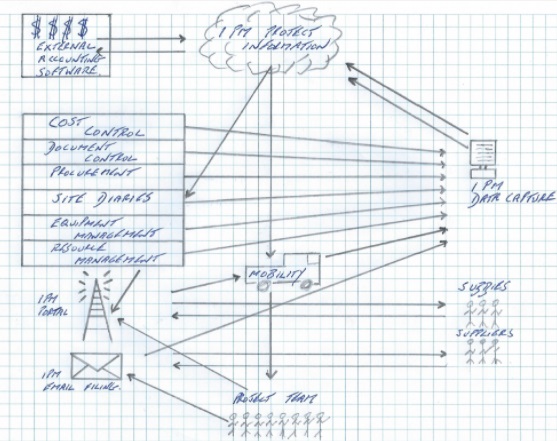 $ $ $ $
EXTERNAL
ACCOUNTING
SOFTWARE
IPM PROJECT
INFORMATION
COST
CONTROL
DOCUMENT
CONTROL
PROCUREMENT
SITE DIARIES
EQUIPMENT
MANAGEMENT
RESOURCE
MANAGEMENT
IPM
DATA CAPTURE
MOBILITY
IPM
PORTAL
SUBBIES
SUPPLIERS
IPM
EMAIL FILING.
PROJECT TEAM